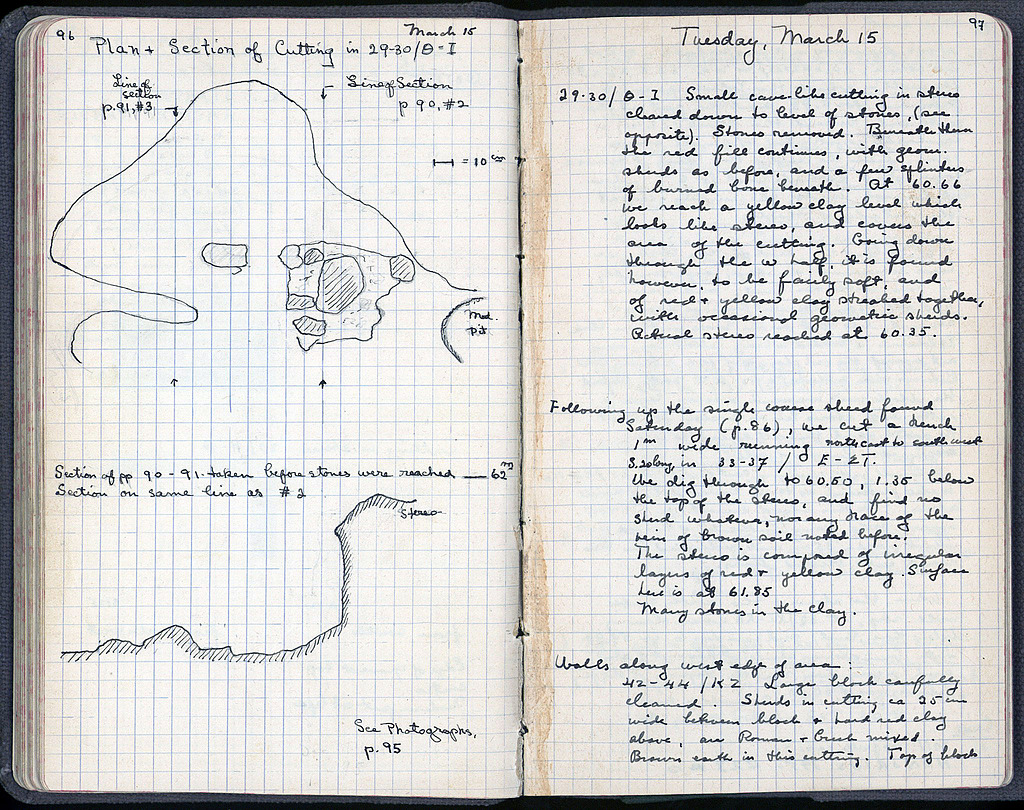 96
March 15
Plan + Section of Cutting in 29-30/Θ-I
Line of
section
p. 91, #3
Line of Section
p 90, #2
= 10 cm
Mod.
pit
Section of pp 90 - 91 taken before stones were reached — 62m
Section on same line as #2
Stereo
See Photographs,
p. 95
97
Tuesday, March 15
29-30/Θ-I Small cave-like cutting in stereo
cleared down to level of stones, (see
opposite). Stones removed. Beneath them
the red fill continues, with geom.
sherds as before, and a few splinters
of burned bone beneath. At 60.66
we reach a yellow clay level which
looks like stereo, and covers the
area of the cutting. Going down
through the w half, it is found
however, to be fairly soft, and
of red + yellow clay streaked together,
with occasional geometric sherds.
Actual stereo reached at 60.35.
Following up the single coarse sherd found
Saturday (p. 86), we cut a trench
1m wide running northeast to southwest
long, in 33-37 / E - ΣT.
We dig through to 60.50, 1.35 below
the top of the stereo, and find no
sherd whatever, nor any trace of the
vein of brown soil noted before.
The stereo is composed of irregular
layers of red + yellow clay. Surface
here is at 61.85
Many stones in the clay.
Walls along west edge of area:
42-44 / KZ Large block carefully
cleaned. Sherds in cutting ca 25 cm
wide between block + hard red clay
above, are Roman + Greek mixed.
Brown earth in this cutting. Top of block